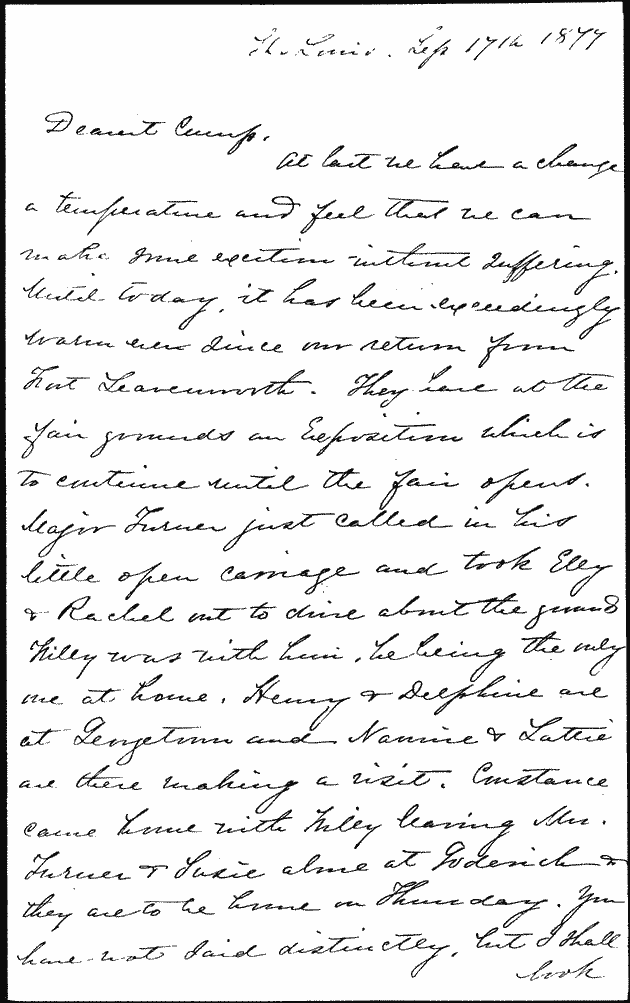 St. Louis. Sep 17th 1877
Dearest Cump.
At last we have a change
a temperature and feel that we can
make some exertion without suffering.
Until today, it has been exceedingly
warm ever since our return from
Fort Leavenworth. They have at the
fair grounds an Exposition which is
to continue until the fair opens.
Major Turner just called in his
little open carriage and took Elly
& Rachel out to drive about the ground
Wilky was with him, he being the only
one at home. Henry & Delphine are
at Georgetown and Nannie & Lattie
are there making a visit. Constance
came home with Wilky leaving Mrs.
Turner & Susie alone at Goderich &
they are to be home on Thursday. You
have not said distinctly, but I shall
look